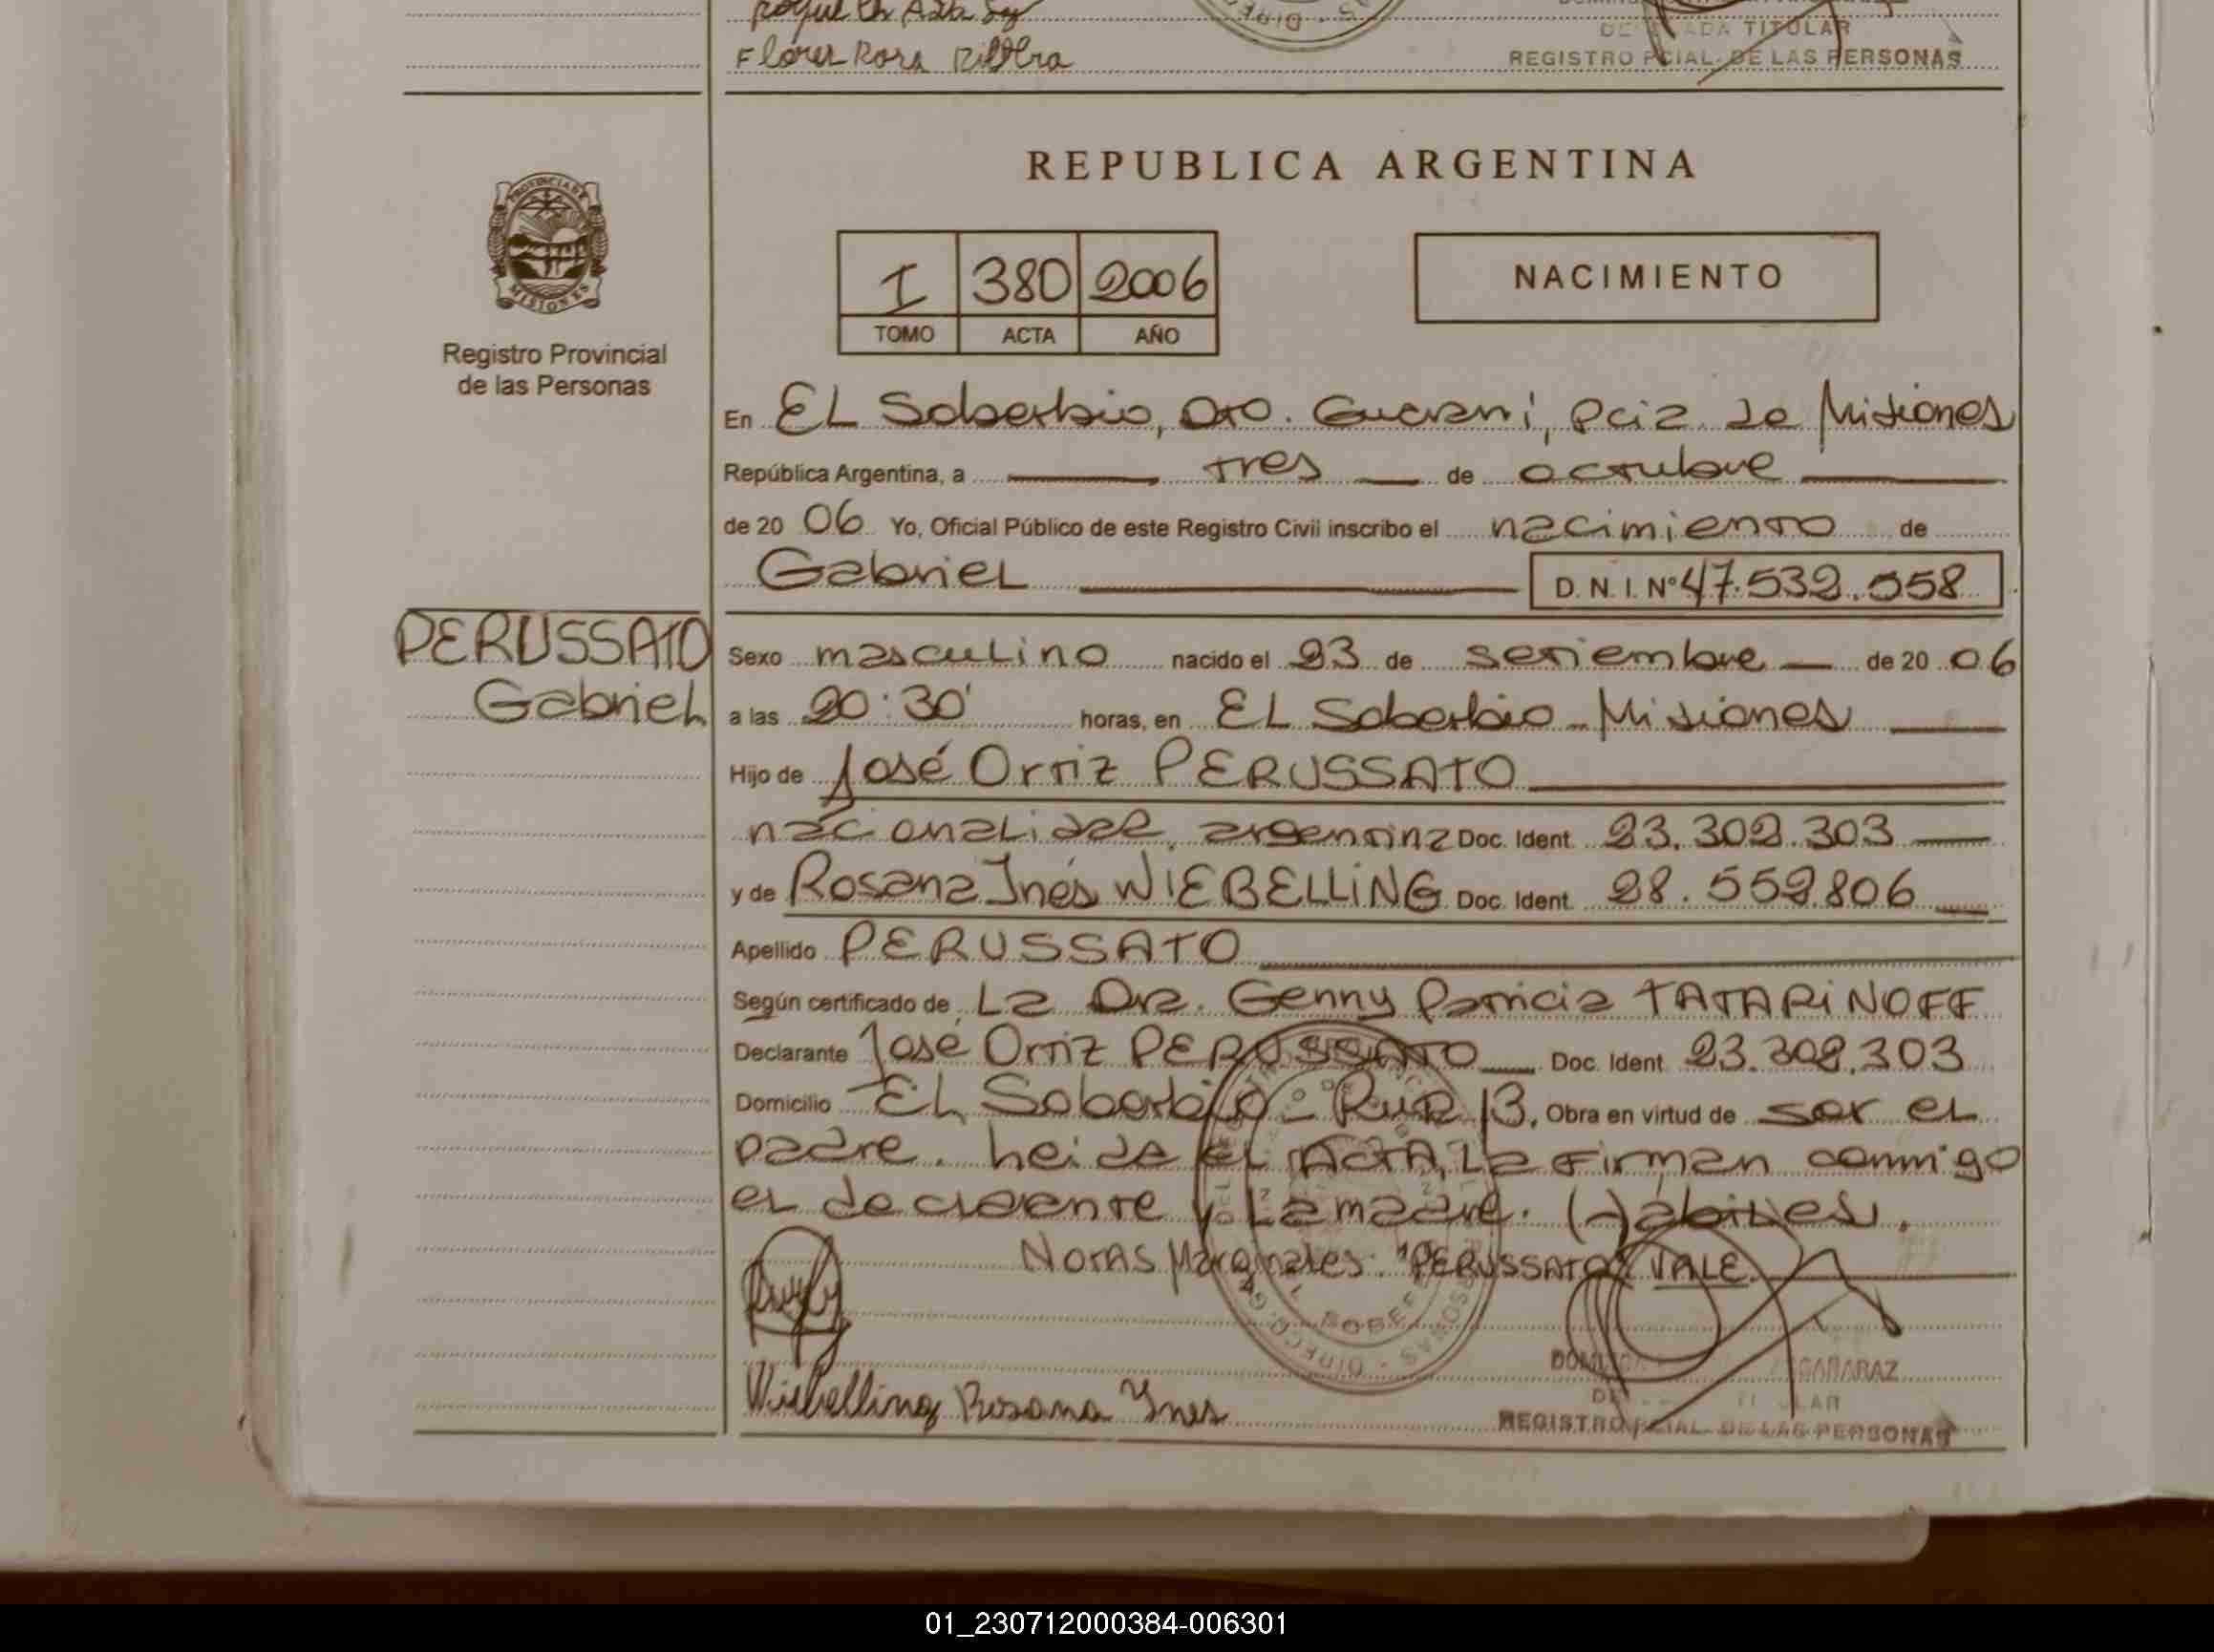 Flores Rosa
TITULAR
REGISTRO PCIAL. DE LAS PERSONAS
REPUBLICA ARGENTINA
PROVINCIA DE
MISIONES
Registro Provincial
de las Personas
I 380 2006
TOMO ACTA AÑO
NACIMIENTO
En EL Soberbio, Dto. Guarani, Pcia de Misiones
República Argentina, a tres de octubre
de 20 06 Yo, Oficial Público de este Registro Civil inscribo el nacimiento de
Gabriel D. N. I. Nº 47.532.558
PERUSSATO
Gabriel
Sexo masculino nacido el 23 de setiembre de 20 06
a las 20:30' horas, en EL Soberbio - Misiones
Hijo de José Ortiz PERUSSATO
nacionalidad argentina Doc. Ident. 23.302.303
y de Rosana Inés WIEBELLING Doc. Ident. 28.552.806
Apellido PERUSSATO
Según certificado de La Dra. Genny Patricia TATARINOFF
Declarante José Ortiz PERUSSATO Doc. Ident. 23.302.303
Domicilio EL Soberbio - Ruta 13, Obra en virtud de ser el
padre. Leida el ACTA, La Firman conmigo
el declarante y La madre. (-) abiles.
Notas Marginales: "PERUSSATO" VALE
Wiebelling Rosana Ynes
REGISTRO PCIAL. DE LAS PERSONAS
01_230712000384-006301